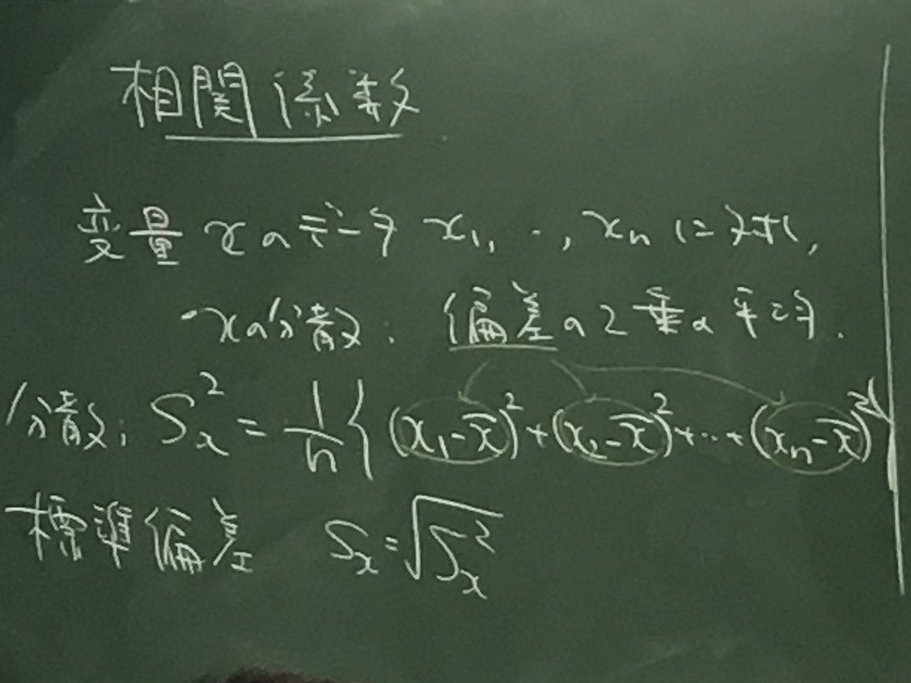 相関係数
変量 xのデータ x₁, ‥, xₙ に対し,
xの分散: 偏差の2乗の平均.
分散: Sₓ² = 1/n { (x₁-x̄)² + (x₂-x̄)² + ‥ + (xₙ-x̄)² }
標準偏差 Sₓ = √Sₓ²